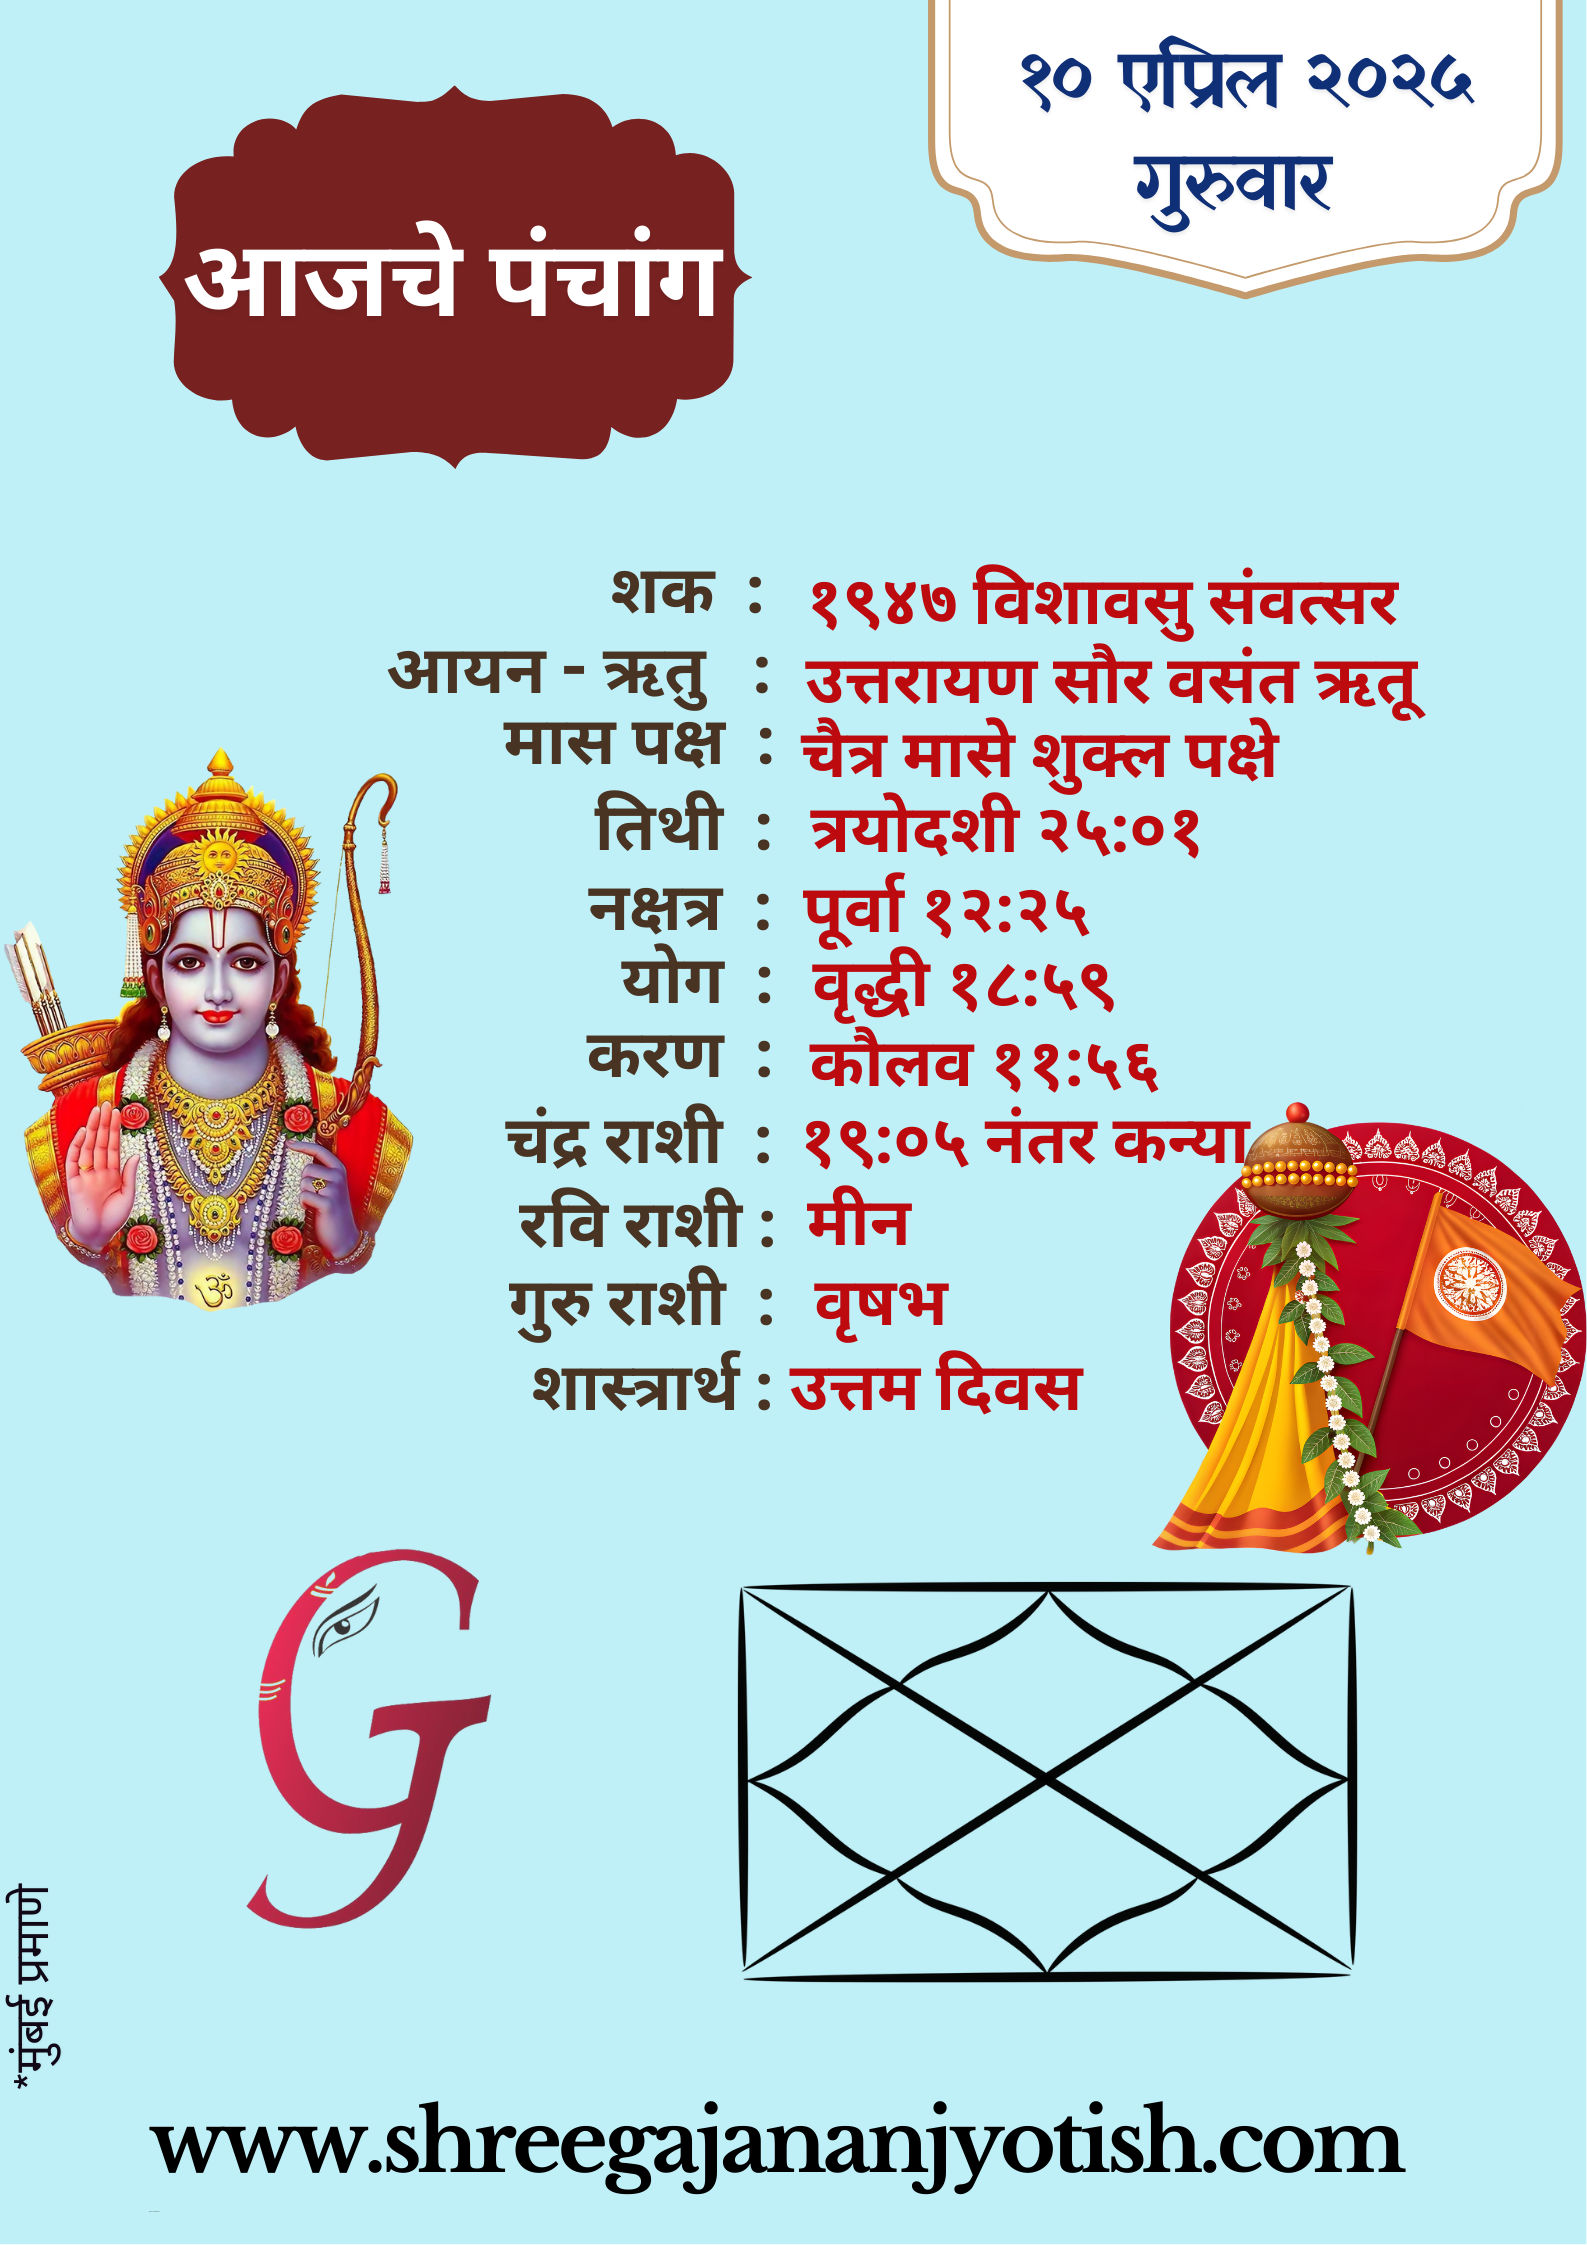 १० एप्रिल २०२५
गुरुवार
आजचे पंचांग
शक : १९४७ विशावसु संवत्सर
आयन - ऋतु : उत्तरायण सौर वसंत ऋतू
मास पक्ष : चैत्र मासे शुक्ल पक्षे
तिथी : त्रयोदशी २५:०१
नक्षत्र : पूर्वा १२:२५
योग : वृद्धी १८:५९
करण : कौलव ११:५६
चंद्र राशी : १९:०५ नंतर कन्या
रवि राशी : मीन
गुरु राशी : वृषभ
शास्त्रार्थ : उत्तम दिवस
ॐ
*मुंबई प्रमाणे
www.shreegajananjyotish.com